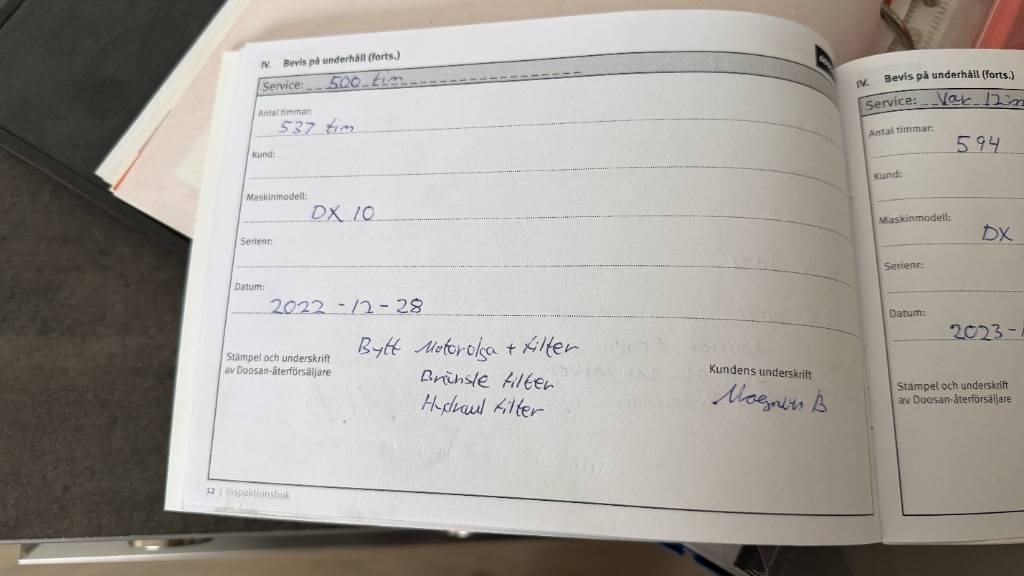 IV. Bevis på underhåll (forts.)
Service: 500 tim
Antal timmar:
537 tim
Kund:
Maskinmodell:
DX 10
Serienr:
Datum:
2022-12-28
Stämpel och underskrift
av Doosan-återförsäljare
Bytt Motorolja + filter
Bränsle filter
Hydraul filter
Kundens underskrift
Magnus B
12 | Inspektionsbok
IV. Bevis på underhåll (forts.)
Service: Var 12:
Antal timmar:
594
Kund:
Maskinmodell:
DX
Serienr:
Datum:
2023-1
Stämpel och underskrift
av Doosan-återförsäljare